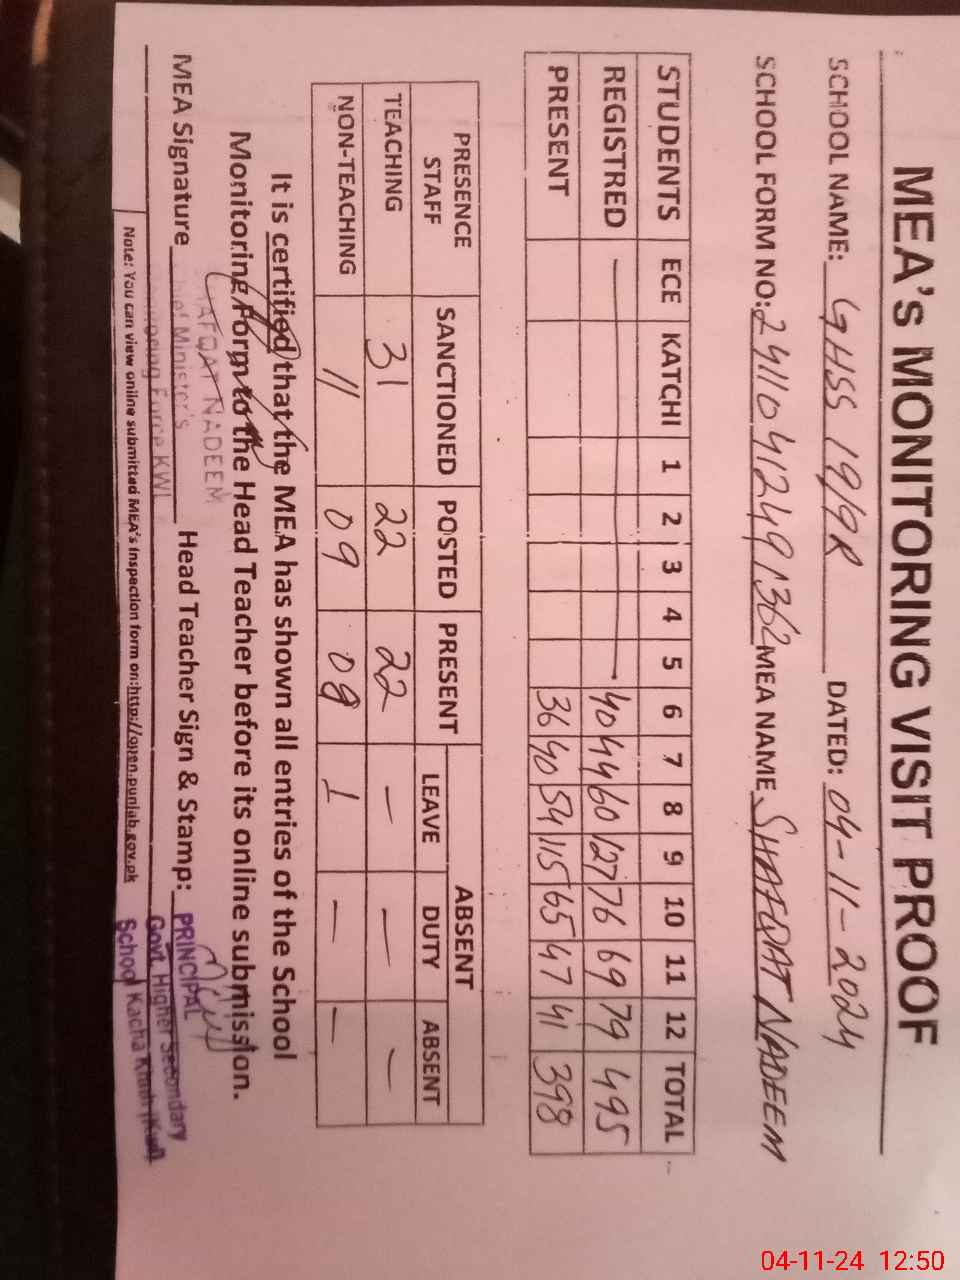 MEA's MONITORING VISIT PROOF
SCHOOL NAME: GHSS 19/9R DATED: 04-11-2024
SCHOOL FORM NO: 24110412491362 MEA NAME SHAFQAT NADEEM
STUDENTS ECE KATCHI 1 2 3 4 5 6 7 8 9 10 11 12 TOTAL
REGISTRED — 40 44 60 127 76 69 79 495
PRESENT 36 40 54 115 65 47 41 398
PRESENCE STAFF SANCTIONED POSTED PRESENT ABSENT
LEAVE DUTY ABSENT
TEACHING 31 22 22 — — —
NON-TEACHING 11 09 08 1 — —
It is certified that the MEA has shown all entries of the School
Monitoring Form to the Head Teacher before its online submission.
SHAFQAT NADEEM
MEA Signature Head Teacher Sign & Stamp: PRINCIPAL
Chief Minister's
Monitoring Force KWL
Govt. Higher Secondary
School Kacha Khuh (Kwl)
Note: You can view online submitted MEA's inspection form on:http://open.punjab.gov.pk
04-11-24 12:50